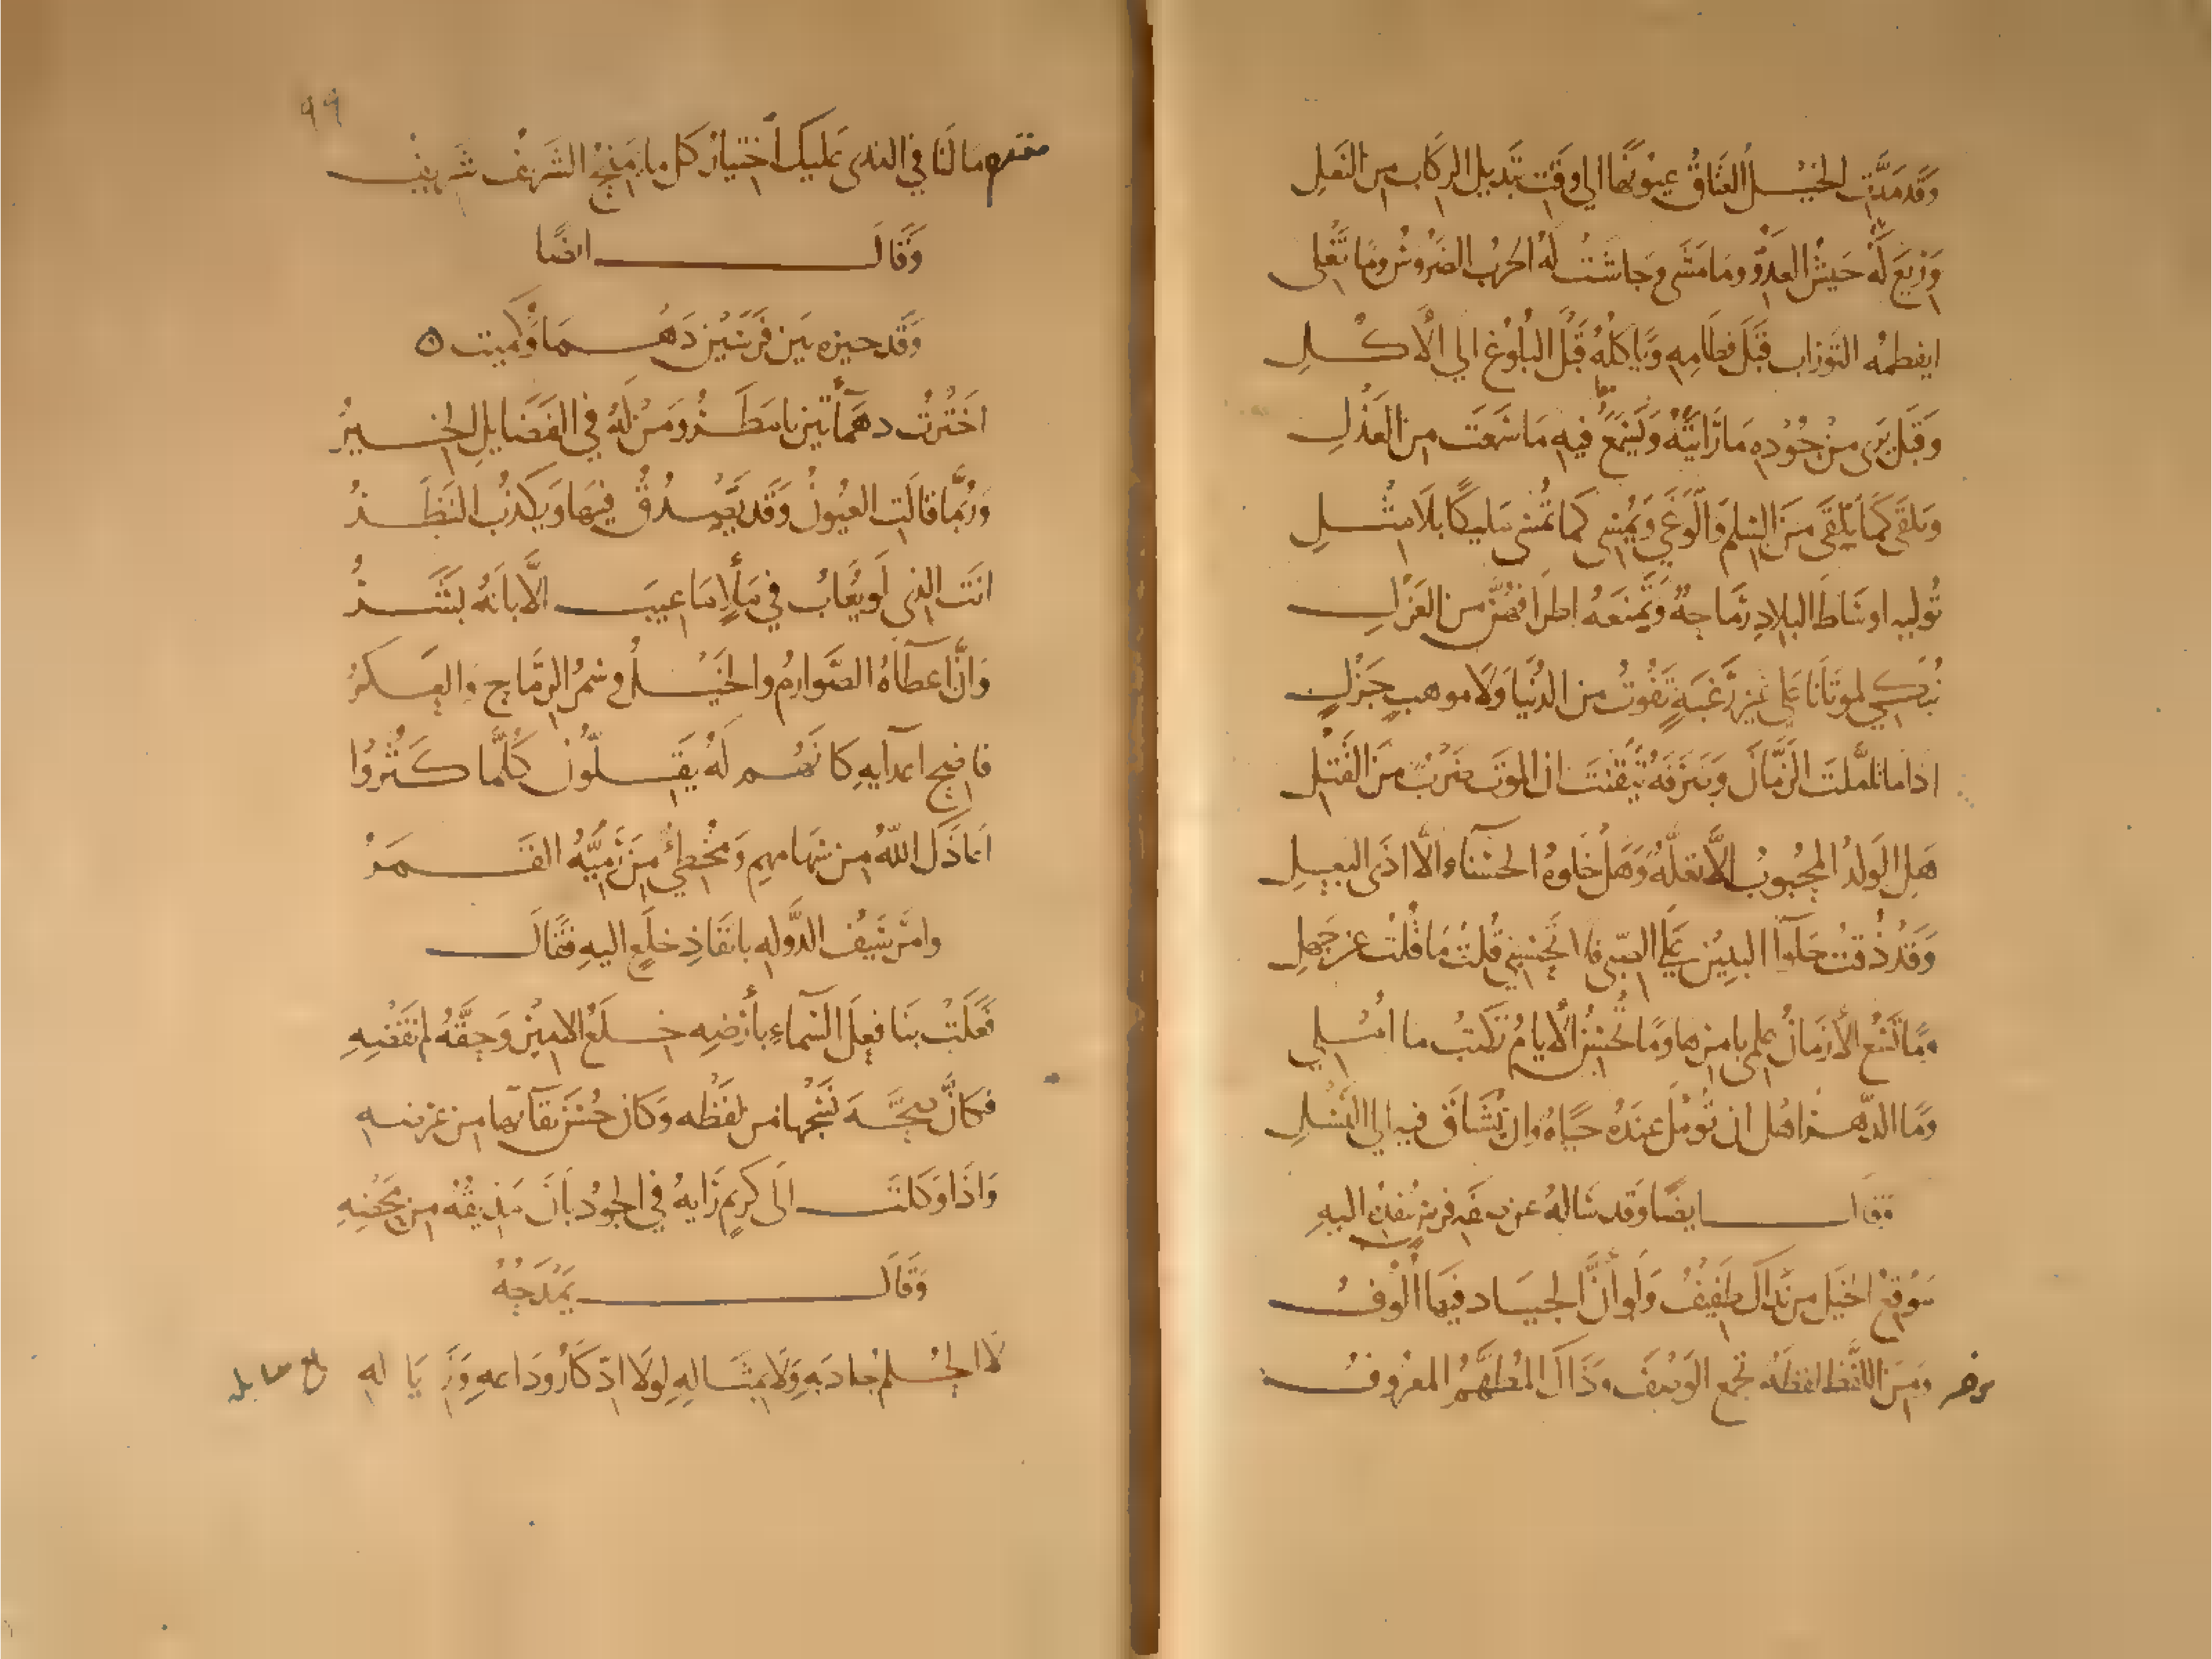 وَقَد مَدَّتِ الخَيْلُ العِتَاقُ عيُونَهَا الي وَقتِ تَبدِيلِ الرِّكابِ مِن النَّعلِ
وَرِيعَ لَهُ جَيشُ العَدُوِّ ومَا مَشَى وَجَاشَتْ لَهُ الحَربُ الضَّرُوسُ وَمَا تَغلِى
ايفطمُه التَورَاب قَبْلَ فِطَامِهِ وَيَاكلُهُ قَبْلَ البلُوغ الي الأكْلِ
وَقَبلَ يَرى مِنْ جُودِهِ مَا رَايتَهُ وَيَسْمَعُ فيهِ مَا سَمَعت مِن العَذْلِ
وَيلقَى كَمَا تَلقَى مِنَ السِّلمِ وَالوَغَي وَيُمْسِى كَما تُمْسِى مَليكًا بلَا مِثْلِ
تُوليهِ اوسَاطَ البِلادِ رِمَاحهُ وَتَمنَعهُ اطرَافهُنَّ من العَزْلِ
نُبَكِّي لموتَانَا عَلي غَيرِ رَغبَةٍ تَفُوتُ مِن الدُنيَا وَلَا موهبٍ جَزْلِ
اذَا ما تَامَّلتَ الزَّمَانَ وَصَرفَهُ تَيَقنتَ ان الموتَ ضَربٌ مِنَ القَتْلِ
هَلِ الوَلدُ المحبُوبُ الَّا تعلَّهُ وَهَلْ خَلوهُ الحَسْناءِ الَّا اذَى البَعلِ
وَقَدْ ذُقتُ حَلوَآ البنِينَ عَلَي الصِّبى فلا تَحْسِبنِي قُلتُ مَا قُلتُ عن جَهلِ
ومَا تَسَعُ الأزمَانُ عِلمى بامرِها ومَا تُحْسِنُ الأيامُ تَكتبُ ما امْلِي
وَمَا الدَّهرُ اهْلٌ ان تُومِلَ عِندَهُ حَيَاهٌ وان يُشتَاقَ فيهِ الي النَّسْلِ
فقال ايضًا وَقَد سَالهُ عن صفه فرسٍ يُنفِذُه اليهِ
مَوقِعُ الخَيلِ مِن نَدَاكَ طَفِيفُ وَلَو أنَّ الجيَاد فيهَا أُلُوفُ
وَمِنَ اللَّفظ لفظَه تجمَع الوَصْفَ وَذَاكَ المُطَهَّمُ المعْرُوفُ
٩٩
مَا لنَا في الندَى عَليكَ اختِيَارٌ كل ما يَمنحُ الشَّرِيفُ شَرِيفُ
وَقَالَ ايضًا
وَقَد خيره بَين فَرَسَيْنِ دَهْمَا وَكمِيت ه
اختَرْتُ دهمآتَينِ يا مَطَرُ ومَن لَهُ في الفَضَايلِ الخِيَرُ
وَرُبَّما قالَتِ العُيونُ وَقَد يَصْدُقُ فيهَا وَيَكذُبُ النَّظَرُ
انتَ الذى لَو يُعَابُ في مَلأٍ مَا عِيبَ الَّا بانهُ بَشَرُ
وَانَّ اعطَآهُ الصَّوارِمُ والخَيْلُ وسُمْرُ الرِّمَاحِ وَالعِكَرُ
فَاضِحُ اعدآيهِ كانَهُم لَهُ يَقِلُّونَ كلَّما كَثُروُا
اعَاذَكَ اللهُ مِن سِهَامِهِمِ وَمُخْطِئٌ مِن رَمِيُّهُ القَمَرُ
وامَر سَيفُ الدَّولهِ بانفَاذِ خِلَعٍ اليهِ فقالَ
فَعَلَتْ بنا فِعلَ السَّماءِ بأَرْضِه خِلَعُ الاميرِ وَحَقَّهُ لم نَقْضِهِ
فكَانَّ صِحَّة نَسْجِها مِن لفَظِه وَكَانَ حُسْنَ نقَآيها مِن عِرضِهِ
وَاذَا وَكَلتَ الَى كَرِيمٍ رَايهُ في الجودِ بَانَ مَذِيقُهُ مِن مَحْضِهِ
وَقَالَ يَمْدَحهُ
لَا الحِلمُ جادَ بهِ وَلَا بمِثَالهِ لولَا ادِّكَارُ وَدَاعهِ وَزِيَالهِ